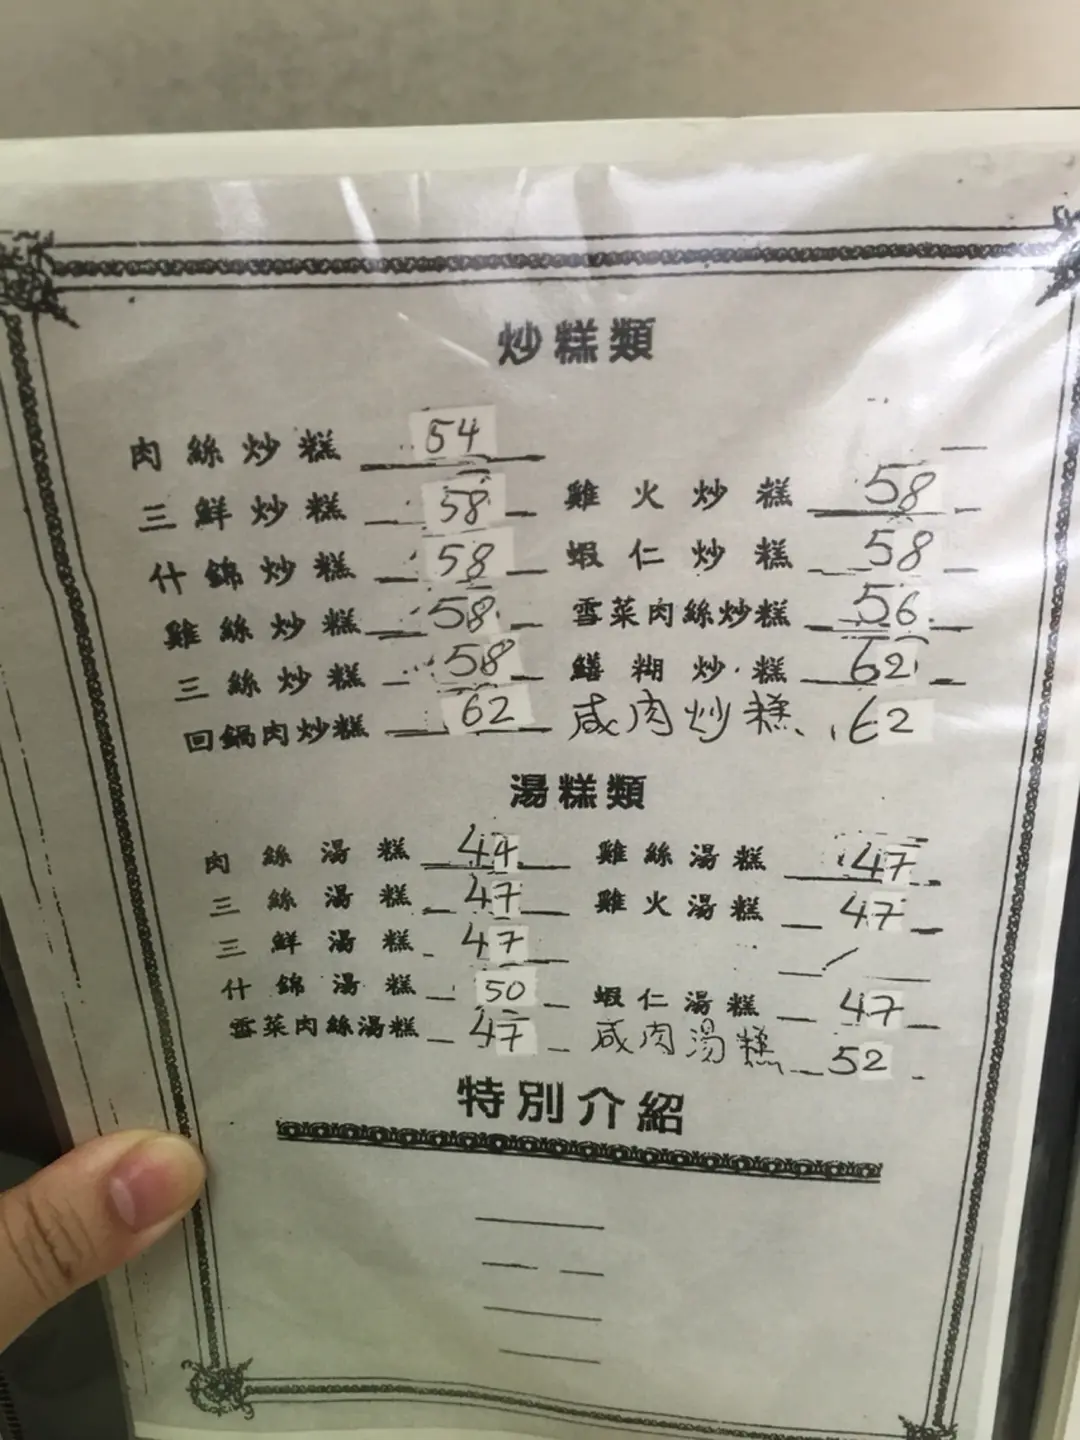 炒糕類
肉絲炒糕 54
三鮮炒糕 58 雞火炒糕 58
什錦炒糕 58 蝦仁炒糕 58
雞絲炒糕 58 雪菜肉絲炒糕 56
三絲炒糕 58 鱔糊炒糕 62
回鍋肉炒糕 62 咸肉炒糕 62
湯糕類
肉絲湯糕 44 雞絲湯糕 47
三絲湯糕 47 雞火湯糕 47
三鮮湯糕 47
什錦湯糕 50 蝦仁湯糕 47
雪菜肉絲湯糕 47 咸肉湯糕 52
特別介紹